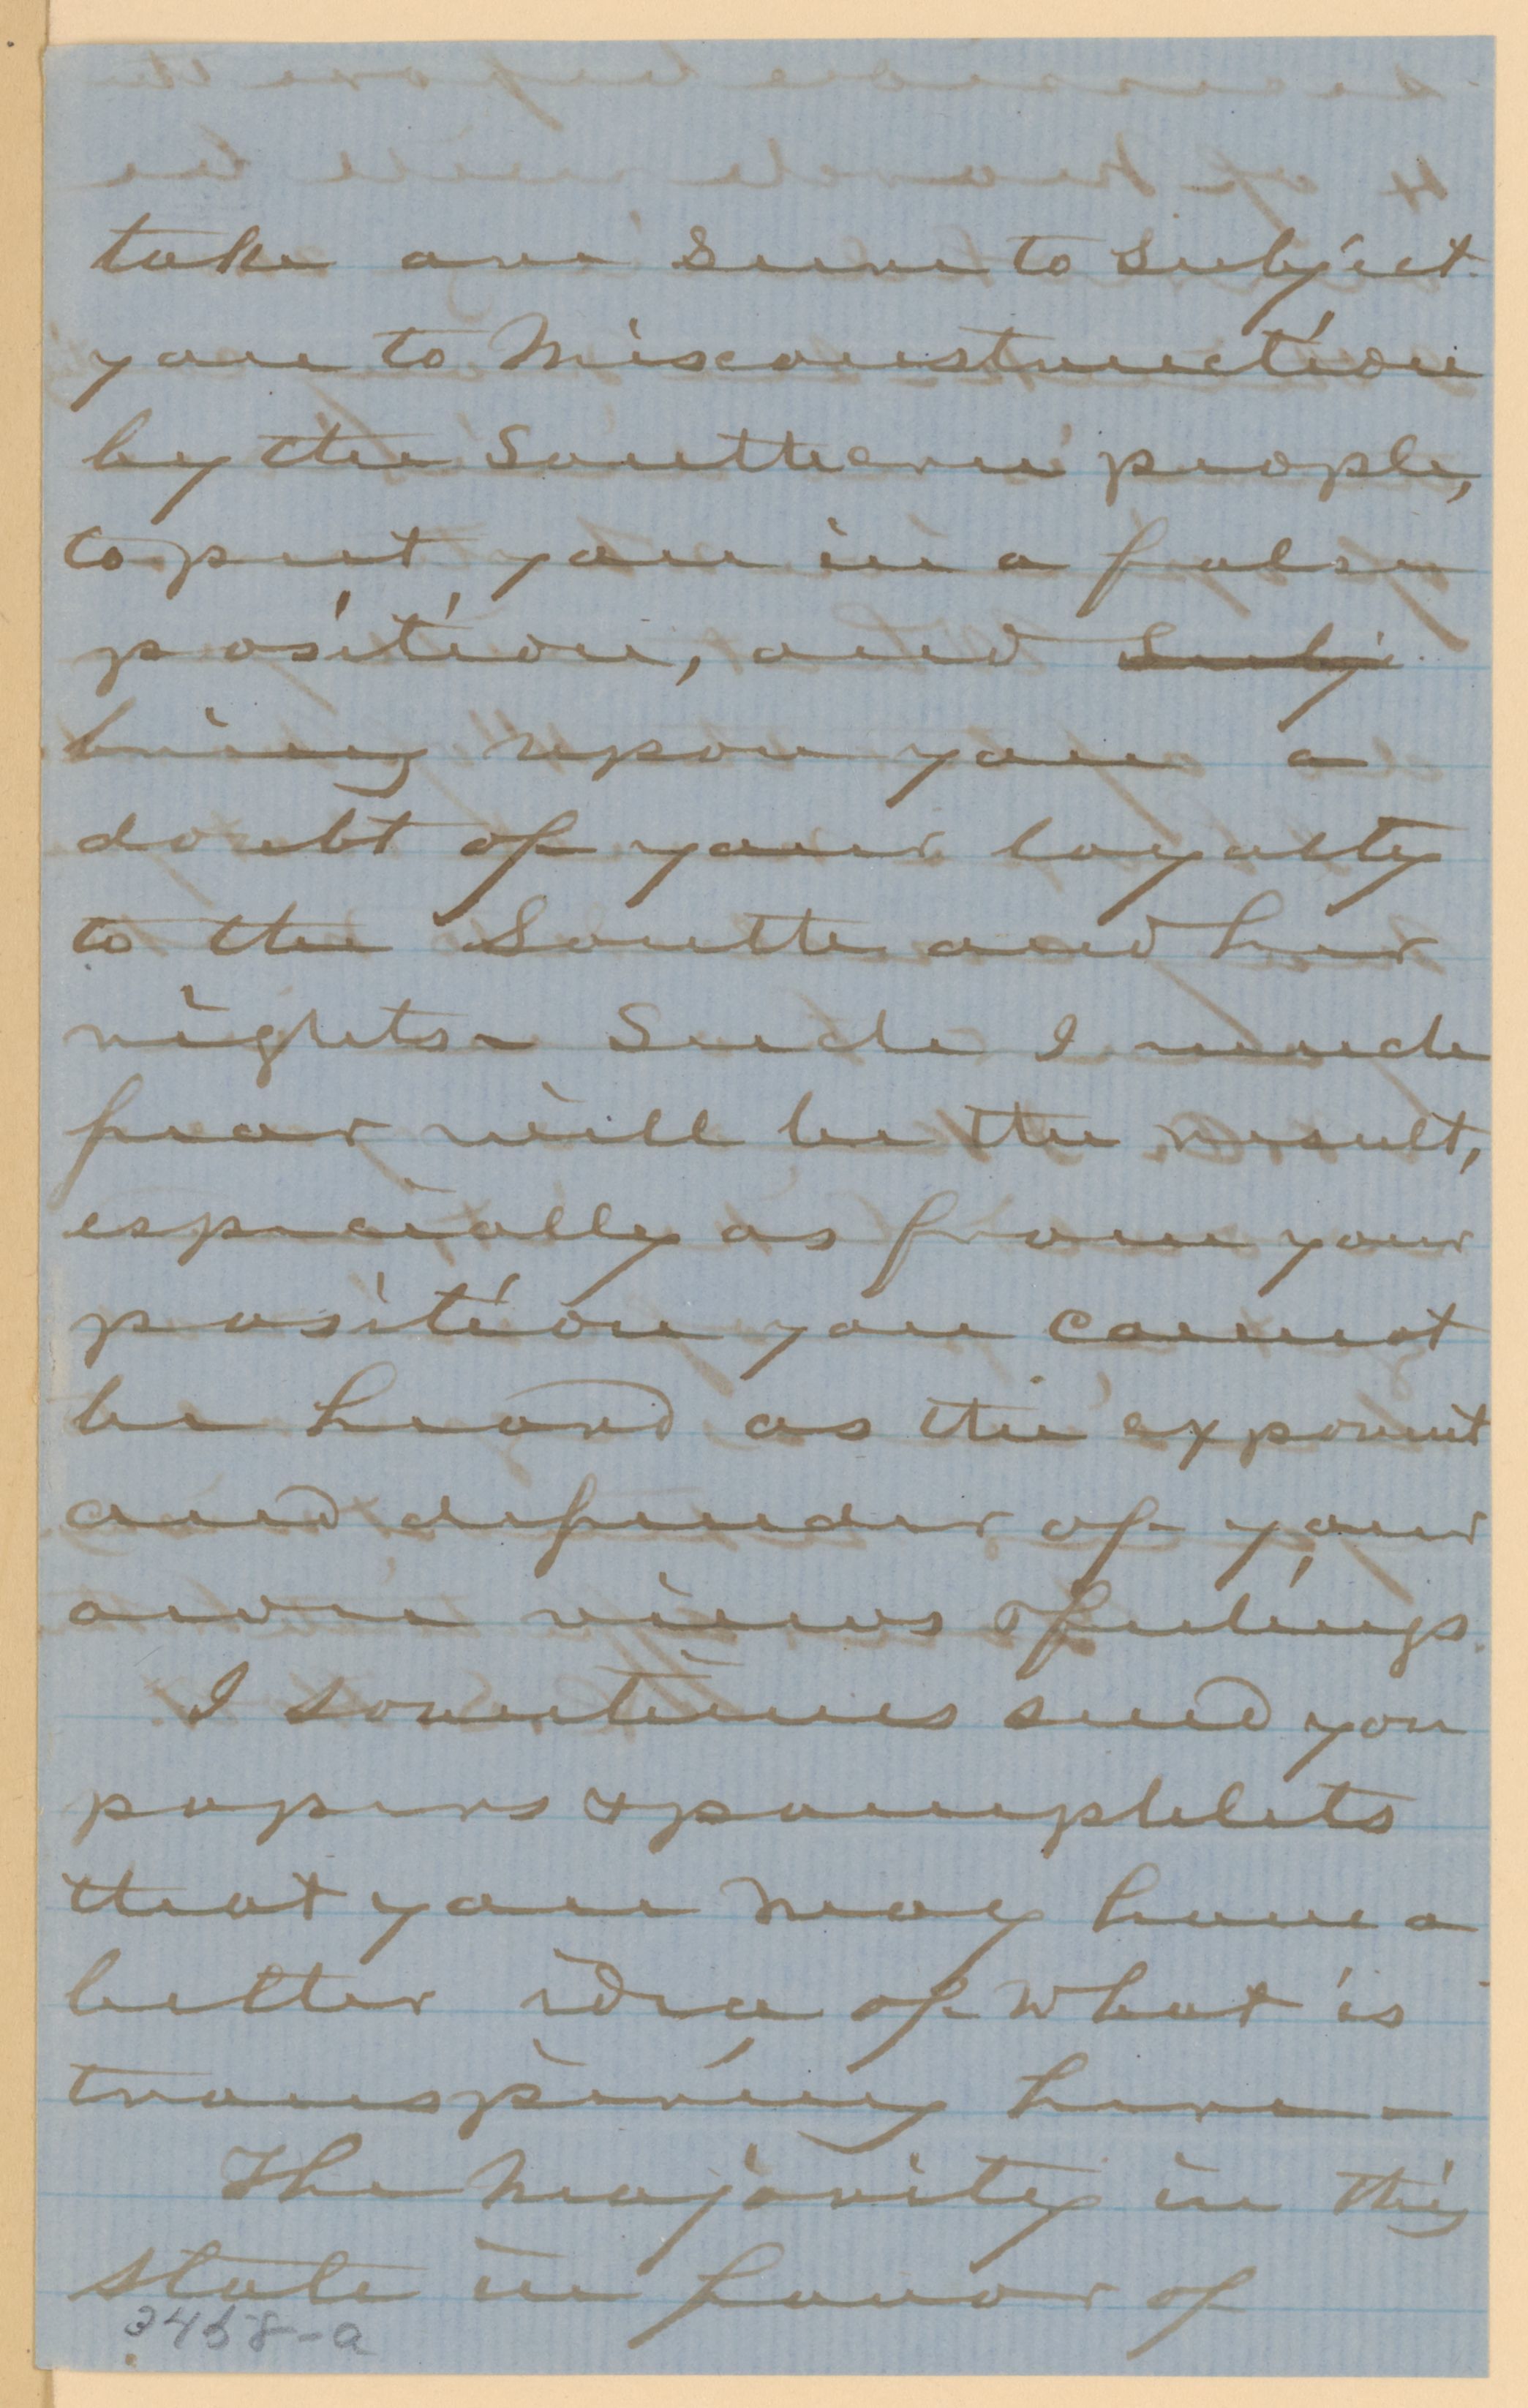 take are sure to subject
you to Misconstruction
by the Southern people,
to put you in a false
position, and subj
bring upon you a
doubt of your loyalty
to the South and her
rights - Such I much
fear will be the result,
especially as from your
position you cannot
be heard as the exponent
and defender of your
own views & feelings.
I sometimes send you
papers & pamphlets
that you may have a
better idea of what is
transpiring here -
The Majority in this
state in favor of
3458-a